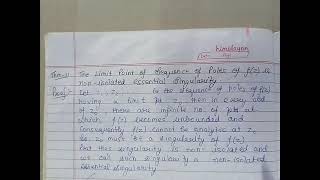 himalayan
Thm:- The Limit Point of sequence of Poles of f(z) is
non-isolated essential singularity.
Proof:- Let z₁, z₂ be the sequence of poles of f(z)
having a limit pt z₀, then in every nbd
of z₀, there are infinite no. of pts at
which f(z) becomes unbounded and
consequently f(z) cannot be analytic at z₀
so z₀ must be a singularity of f(z)
But this singularity is non-isolated and
we call such singularity a non-isolated
essential singularity